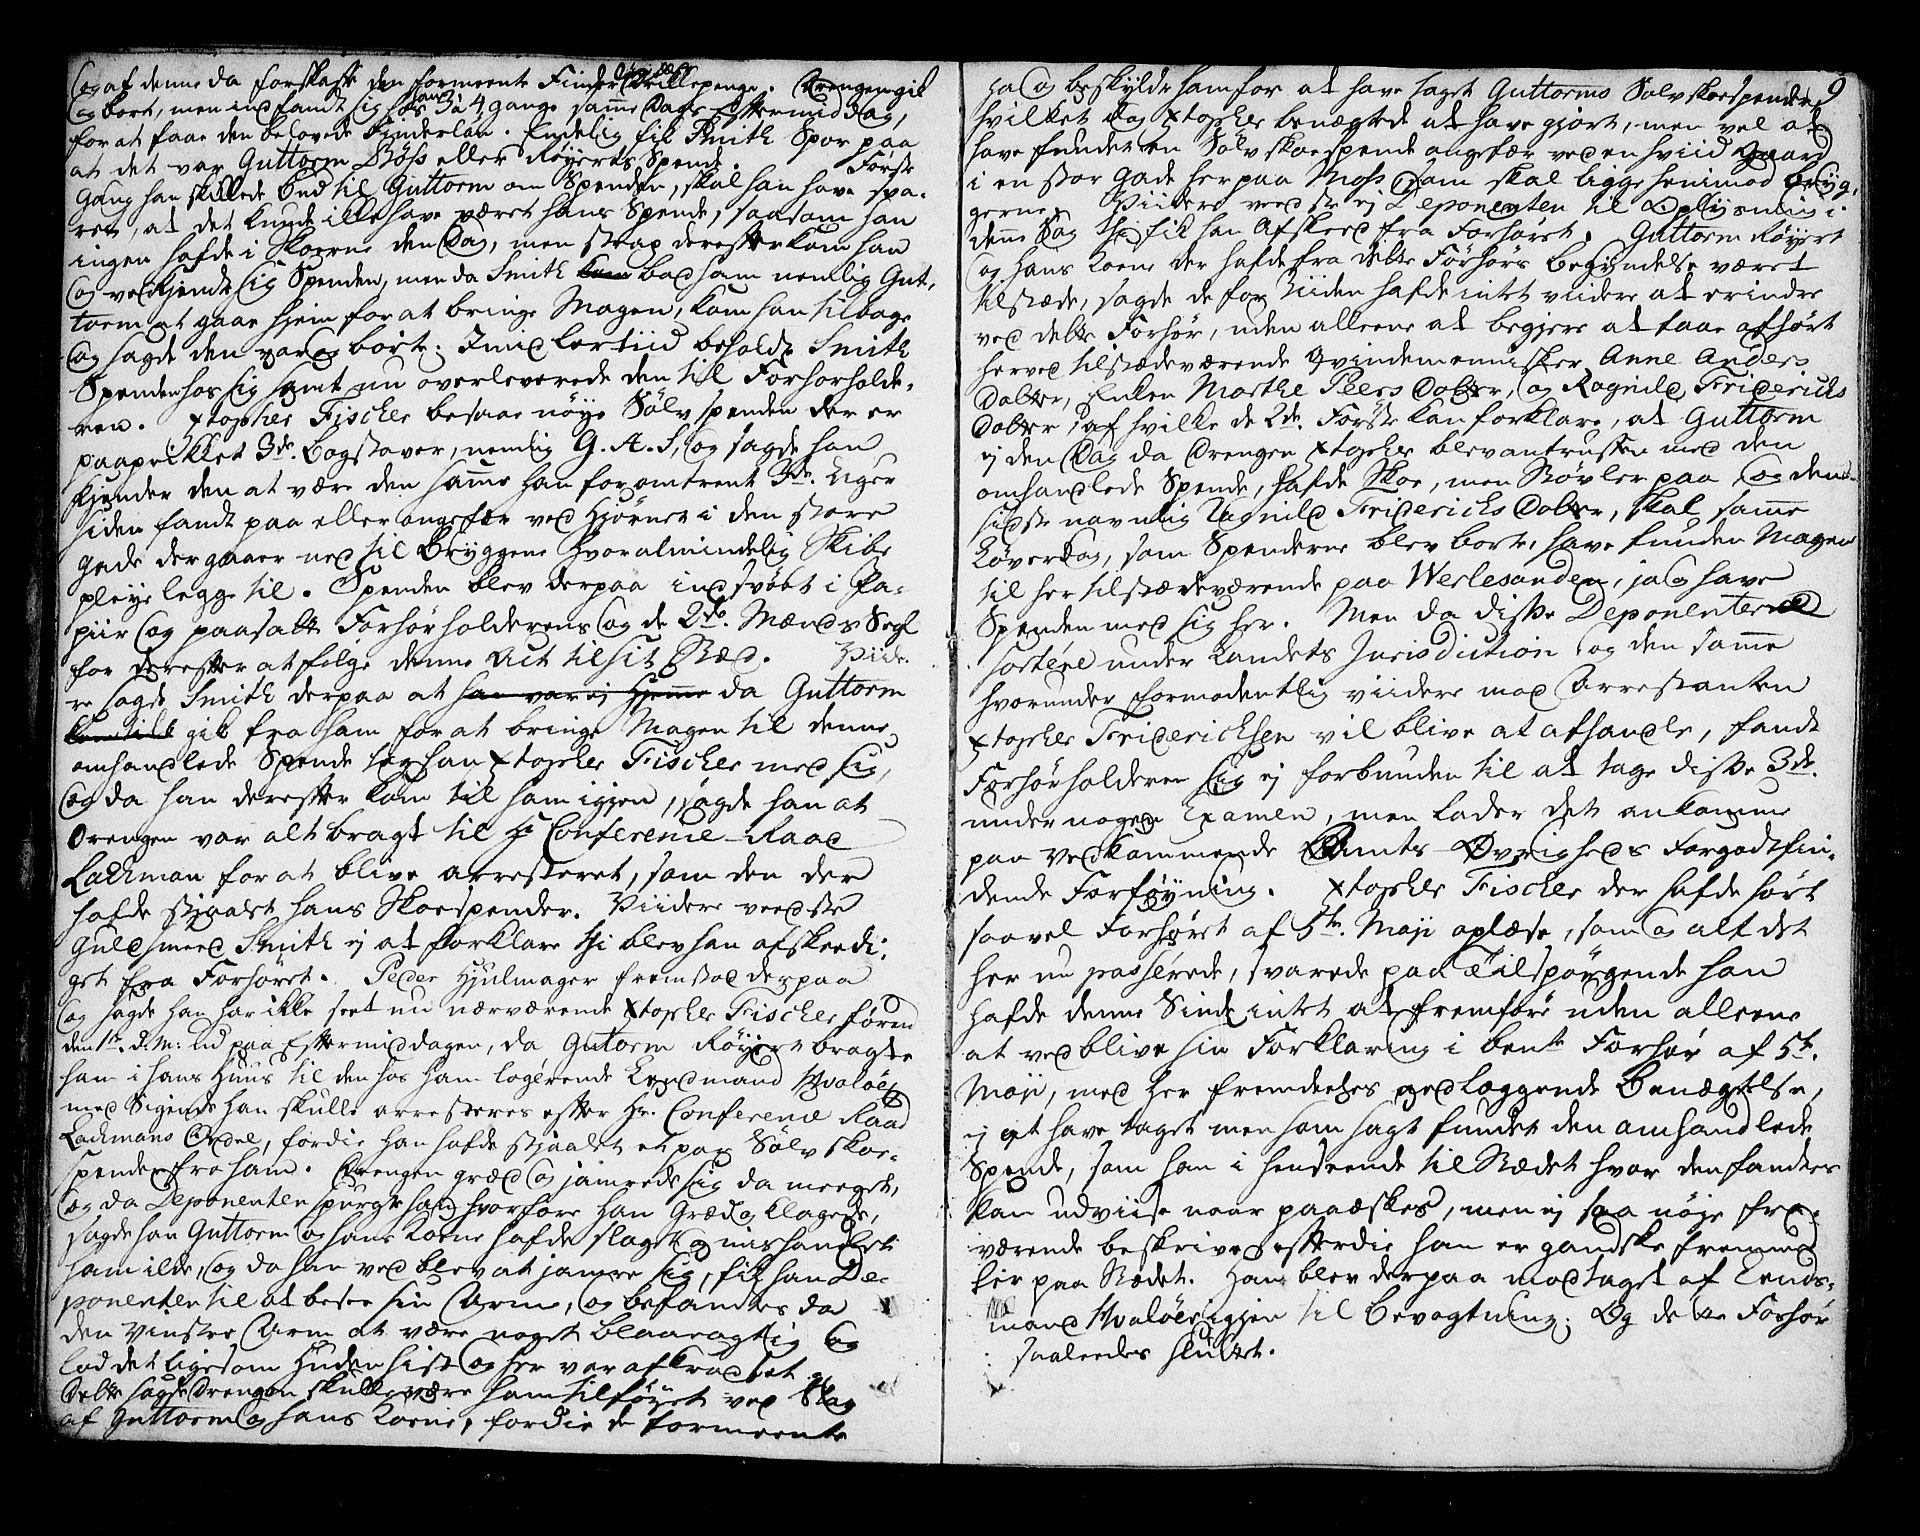 og af denne da forskaffe den formeente Finder Drikkepenge. Drengen gik
og bort, men indfandt sig 3 à 4 gange samme Dags Eftermiddag,
for at faae den belovede Finderløn. Endelig fik Smith Spor paa
at det var Guttorm Böss eller Røyerts Spende. Første
Gang han skikkede bud til Guttorm om Spenden, skal han have sva-
ret, at det kunde ikke have været hans Spende, saasom han
ingen hafde i Skoene den Dag, men strax derefter kom han
og vedkjendte sig Spenden, men da Smith bad ham nemlig Gut-
torm at gaae hjem for at bringe Magen, kom han tilbage
og sagde den var og bort. Imidlertiid beholdt Smith
Spenden hos sig samt nu overleverede den til Forhørholde-
ren. Xtopher Fischer besaae nøye Sølvspenden der er
paaprikket 3de. bogstaver, nemlig G. A. S, og sagde han
kjender den at være den samme han for omtrent 3de. Uger
siden fandt paa eller ongefær ved Hjørnet i den store
Gade der gaaer ned til Bryggene hvor almindelig Skibe
pleye legge til. Spenden blev derpaa indsvøbt i Pa-
piir og paasatt Forhørholderens og de 2de. Mænds Segl
for derefter at følge denne Act til sit Stæd. Viide-
re sagde Smith derpaa at han var ej hjemme da Guttorm
gik fra ham for at bringe Magen til denne
omhandlede Spende tog han Xtopher Fischer med sig,
og da han derefter kom til ham igjen, sagde han at
Drengen var alt bragt til Hr Conference-Raad
Lachman for at blive arresteret, som den der
hafde stjaalet hans Skoespender. Viidere veedste
Guldsmed Smith ej at forklare thi blev han afskeedi-
get fra Forhøret. Peder Hjulmager fremstod derpaa
og sagde han har ikke seet nu nærværende Xtopher Fischer førend
den 1te. d. M: ud paa Eftermiddagen, da Gutorm Røyert bragte
ham i hans Huus til den hos ham logerende Lendmand Hvaløe
med Sigende han skulle arresteres efter Hr. Conference Raad
Lachmans Ordre, fordie han hafde stjaalet et par Sølv skoe-
spender fra ham. Drengen græd og jamrede sig da meeget,
og da Deponenten spurgte ham hvorfore han Græd og klagede,
sagde han Guttorm og hans Kone hafde slaget og mishandlet
ham ilde, og da han ved blev at jamre sig, fik han De-
ponenten til at besee sin Arm, og befandtes da
den Vinstre Arm at være noget blaaeagtig og
lod det ligesom Huden hist og her var afkradset
Dette sagde Drengen skulle være ham tilføyet ved Slag
af Guttorm og hans Kone, fordie de formeente
9
ha og beskyldte ham for at have taget Guttorms Sølvskoespender,
hvilket dog Xtopher benægtede at have gjort, men vel at
have fundet en Sølvskoespende ongefær ved en hviid Gaard
i en stor Gade her paa Moss som skal ligge henimod Bryg-
gerne. Viidere veedste ej Deponenten til Oplysning i
denne Sag thi fik han Afskeed fra Forhøret. Guttorm Røyert
og hans Kone der hafde fra dette Forhørs begyndelse været
tilstæde, sagde de for Tiiden hafde intet viidere at erindre
ved dette Forhør, uden alleene at begjere at faae afhørt
herved tilstædeværende Qvindemennisker Anne Anders
Datter, Enken Marthe Peers Datter, og Ragnild Friderichs
Datter, af hvilke de 2de. Første kan forklare, at Guttorm
ej den Dag da Drengen Xtopher blev antruffen med den
omhandlede Spende, hafde Skoe, men Støvler paa og den
sidst navnlig Ragnild Friderichs Datter, skal samme
Løverdag, som Spenderne blev borte, have funden Magen
til her tilstædeværende paa Werlesanden, ja og have
Spenden med sig her. Men da disse Deponentere
sortére under Landets Jurisdiction og den samme
hvorunder formodentlig viidere mod Arrestanten
Xtopher Friderichsen vil blive at afhandle, fandt
Forhørholderen sig ej forbunden til at tage disse 3de.
under nogen Examen, men lader det ankomme
paa vedkommende Amts Øvrigheds Forgodtfin-
dende Forføyning. Xtopher Fischer der hafde hørt
saavel Forhøret af 5te. Maji oplæse, som og alt det
her nu passerede, svarede paa Tilspørgende han
hafde denne Sinde intet at fremføre uden alleene
at vedblive sin Forklaring i bente Forhør af 5te.
Maji, med her fremdeeles vedlæggende Benægtelse,
ej at have taget men som sagt fundet den omhandlede
Spende, som han i henseende til Stædet hvor den fandtes
kan udviise naar paaæskes, men ej saa nøje fra-
værende beskrive efterdie han er gandske fremmed
her paa Stædet. Han blev derpaa modtaget af Lends-
mand Hvaløe igjen til Bevogtning. Og dette Forhør
saaleedes sluttet.